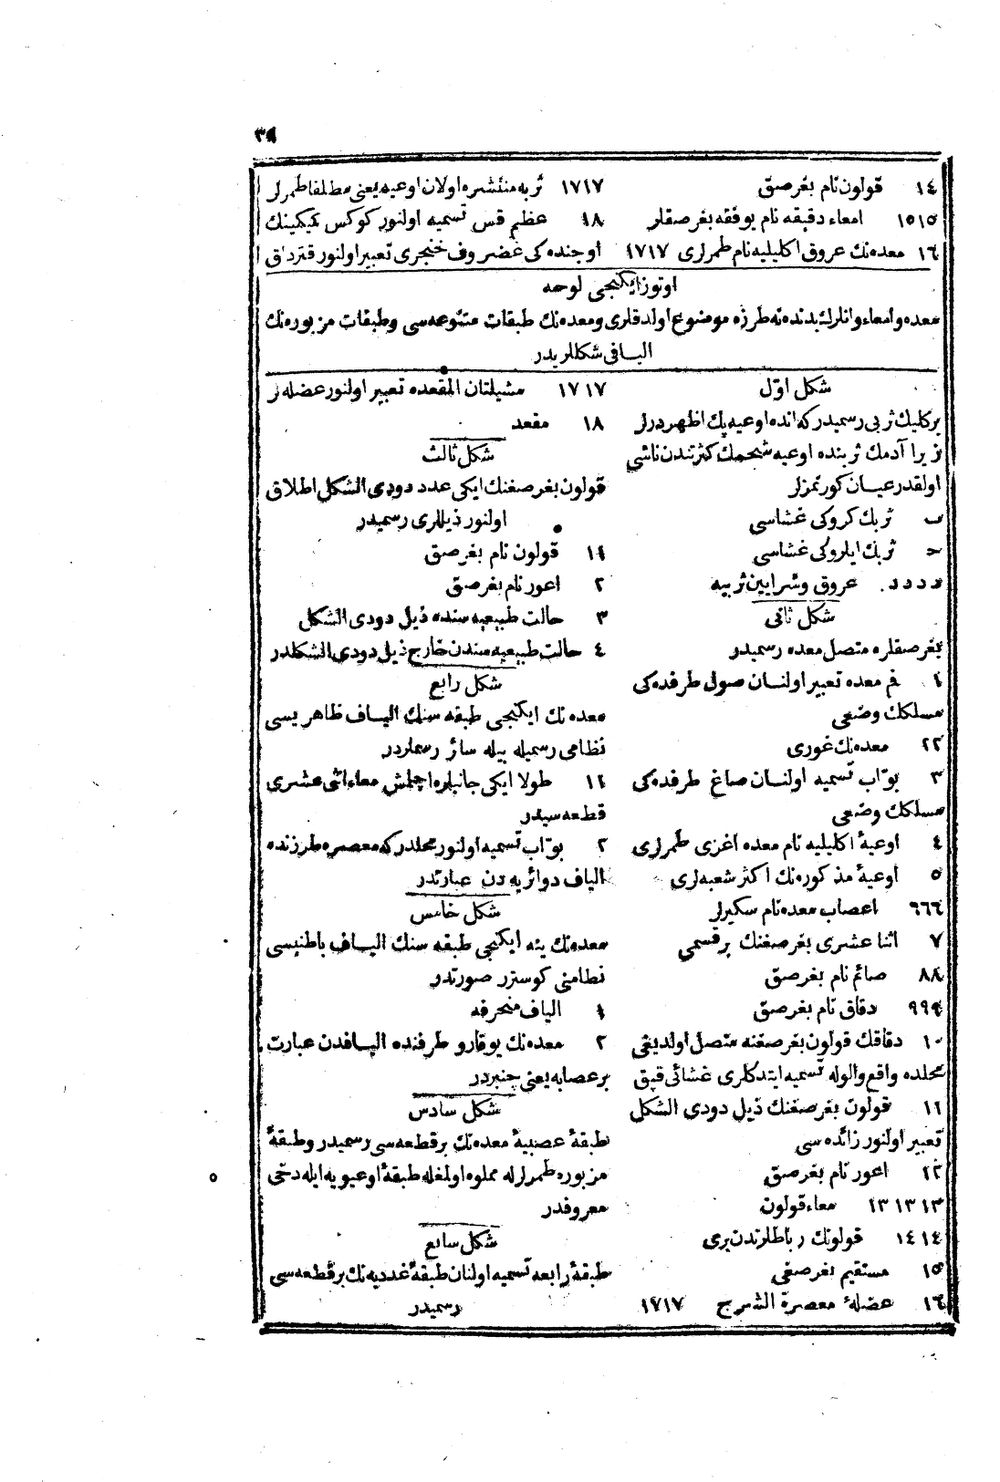 ٣٩
١٤ قولون نام بغرصق
١٥١٥ امعاء دقيقه نام يوفقه بغرصقلر
١٦ معده‌نك عروق اكليليه نام طمرلرى ١٧١٧
١٧١٧ ثربه منتشره اولان اوعيه يعنى مطلقا طمرلر
١٨ عظم قس تسميه اولنور كوكس كميكينك
اوجنده كى غضروف خنجرى تعبير اولنور قترداق
اوتوز ايكنجى لوحه
معده و امعاء و انلرك بدنده نه طرزه موضوع اولدقلرى و معده‌نك طبقات متنوعه‌سى و طبقات مزبوره‌نك
اليافى شكللريدر
شكل اوّل
بركليك ثربى رسميدر كه انده اوعيه پك اظهردرلر
زيرا آدمك ثربنده اوعيه شحمك كثرتندن ناشى
اولقدر عيان كورنمزلر
ب ثربك كروكى غشاسى
ح ثربك ايلروكى غشاسى
د د د د عروق و شرايين ثربيه
شكل ثانى
بغرصقلره متصل معده رسميدر
١ فم معده تعبير اولنان صول طرفده‌كى
مسلكك وضعى
٢٢ معده‌نك غورى
٣ بوّاب تسميه اولنان صاغ طرفده‌كى
مسلكك وضعى
٤ اوعيهٔ اكليليه نام معده اغزى طمرلرى
٥ اوعيهٔ مذكوره‌نك اكثر شعبه‌لرى
٦٦٦ اعصاب معده نام سكيرلر
٧ اثنا عشرى بغرصغنك برقسمى
٨٨ صائم نام بغرصق
٩٩٩ دقاق نام بغرصق
١٠ دقاقك قولون بغرصغنه متصل اولديغى
محلده واقع والوله تسميه ايتدكلرى غشائى قپق
١١ قولون بغرصغنك ذيل دودى الشكل
تعبير اولنور زائده‌سى
١٢ اعور نام بغرصق
١٣ ١٣ ١٣ معاء قولون
١٤١٤ قولونك رباطلرندن برى
١٥ مستقيم بغرصغى
١٦ عضلهٔ معصرة الشرج ١٧١٧
١٧ ١٧ مشيلتان المقعده تعبير اولنور عضله‌لر
١٨ مقعد
شكل ثالث
قولون بغرصغنك ايكى عدد دودى الشكل اطلاق
اولنور ذيللرى رسميدر
١١ قولون نام بغرصق
٢ اعور نام بغرصق
٣ حالت طبيعيه‌سنده ذيل دودى الشكل
٤ حالت طبيعيه‌سندن خارج ذيل دودى الشكلدر
شكل رابع
معده‌نك ايكنجى طبقه‌سنك الياف ظاهريسى
نظامى رسميله بيله سائر رسملردر
١١ طولا ايكى جانبلره اچلمش معاء اثنى عشرى
قطعه‌سيدر
٢ بوّاب تسميه اولنور محلدر كه معصره طرزنده
الياف دوائريه‌دن عبارتدر
شكل خامس
معده‌نك ينه ايكنجى طبقه‌سنك الياف باطنيسى
نظامنى كوسترر صورتدر
١ الياف منحرفه
٢ معده‌نك يوقارو طرفنده اليافدن عبارت
بر عصابه يعنى چنبردر
شكل سادس
طبقهٔ عصبيهٔ معده‌نك برقطعه‌سى رسميدر و طبقهٔ
مزبوره طمرلرله مملوه اولمغله طبقهٔ اوعيويه ايله دخى
معروفدر
شكل سابع
طبقهٔ رابعه تسميه اولنان طبقهٔ غدديه‌نك برقطعه‌سى
رسميدر